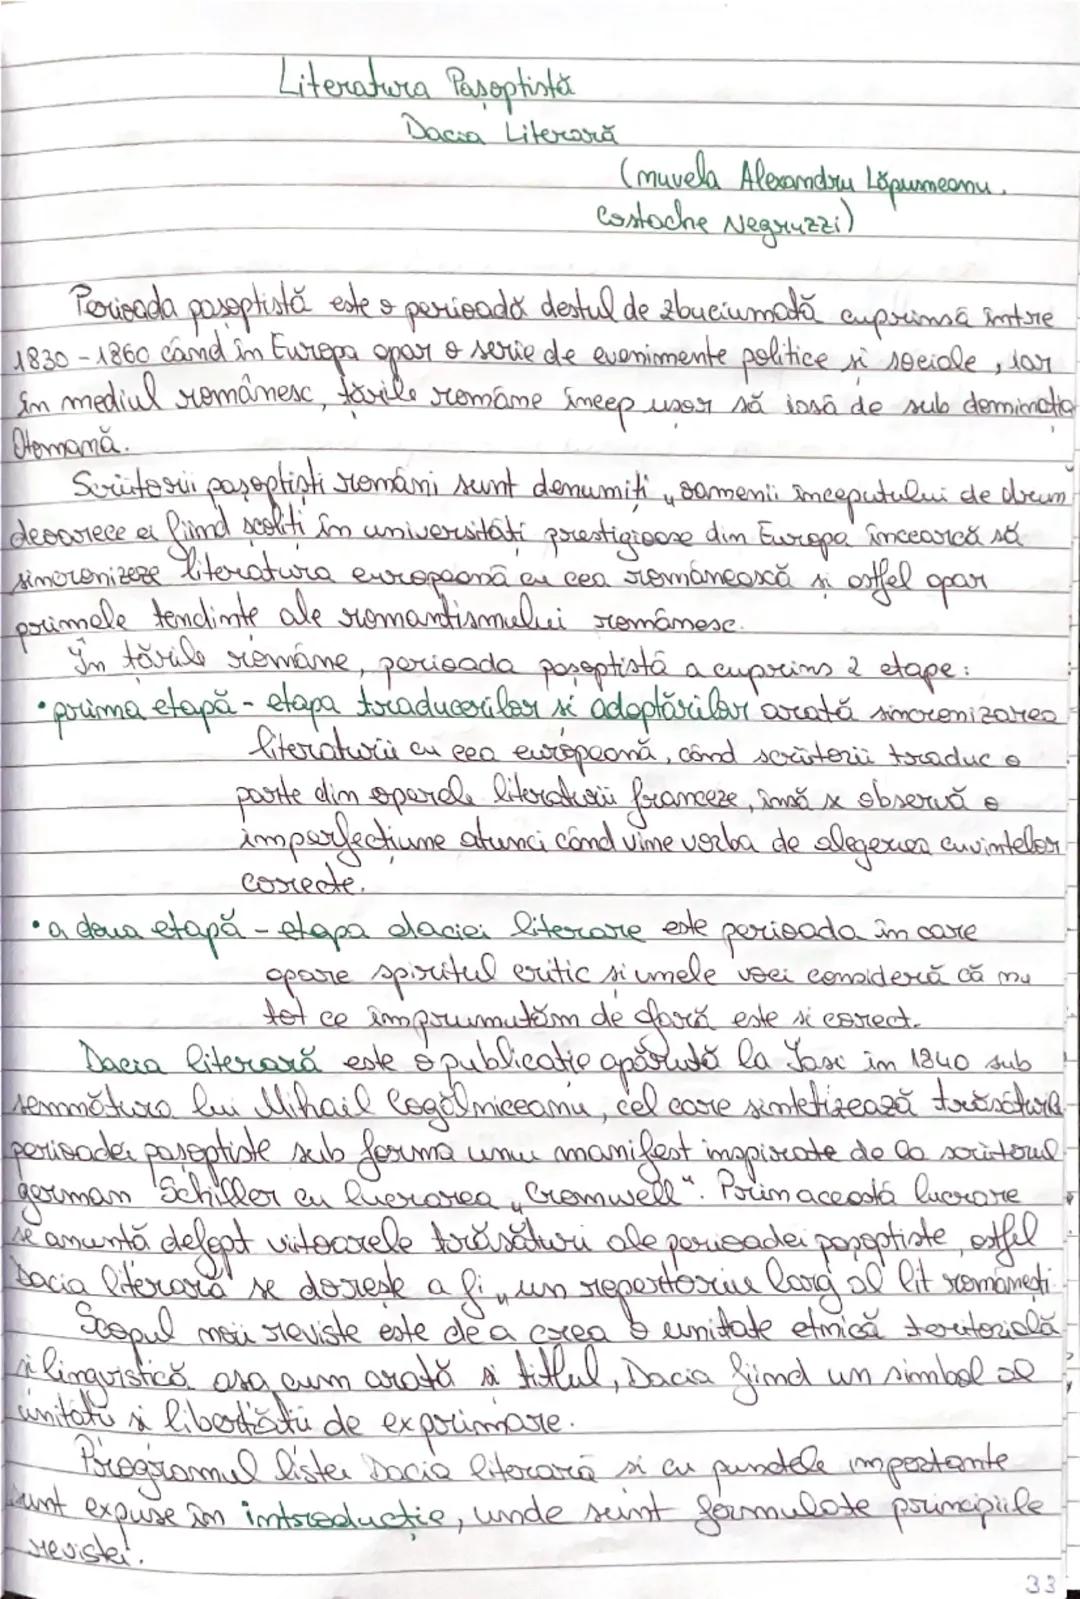 Literatura Pașoptistă
Dacia Literară
(nuvela Alexandru Lăpusneanu.
Costache Negruzzi)
Perioada pasoptistă este o perioadă destul de zbuciumată cuprinsă între
1830 - 1860 când în Europa apar o serie de evenimente politice si sociale, iar
în mediul românesc, tările române încep usor să iasă de sub dominația
Otomană.
Scriitorii pașoptiști români sunt denumiți „oamenii începutului de drum
deoarece ei fiind scoliți în universități prestigioase din Europa încearcă să
sincronizeze literatura europeană cu cea românească si astfel apar
primele tendințe ale romantismului românesc.
În tările române, perioada pasoptistă a cuprins 2 etape:
• prima etapă - etapa traducerilor si adaptărilor arată sincronizarea
literaturii cu cea europeană, când scriitorii traduc o
parte din operele literaturii franceze, însă se observă o
imperfecțiune atunci când vine vorba de alegerea cuvintelor
corecte.
• a doua etapă - etapa daciei literare este perioada în care
apare spiritul critic si unele voci consideră că nu
tot ce împrumutăm de afară este si corect.
Dacia literară este o publicație apărută la Iasi în 1840 sub
semnătura lui Mihail Cogălniceanu, cel care sintetizează trăsătura
perioadei pașoptiste sub forma unui manifest inspirate de la scriitorul
german Schiller cu lucrarea „Cromwell". Prin aceastá lucrare
se anuntă defapt viitoarele trăsături ale perioadei pașoptiste, astfel
Dacia literară se dorește a fi „un repertoriu larg al lit românești.
Scopul noii reviste este de a crea o unitate etnică teritorială
si lingvistică asa cum arată si titlul, Dacia fiind un simbol al
unității si libertății de exprimare.
Programul listei Dacia literară si cu punctele importante
sunt expuse în introducție, unde sunt formulate principiile
revistei.
33